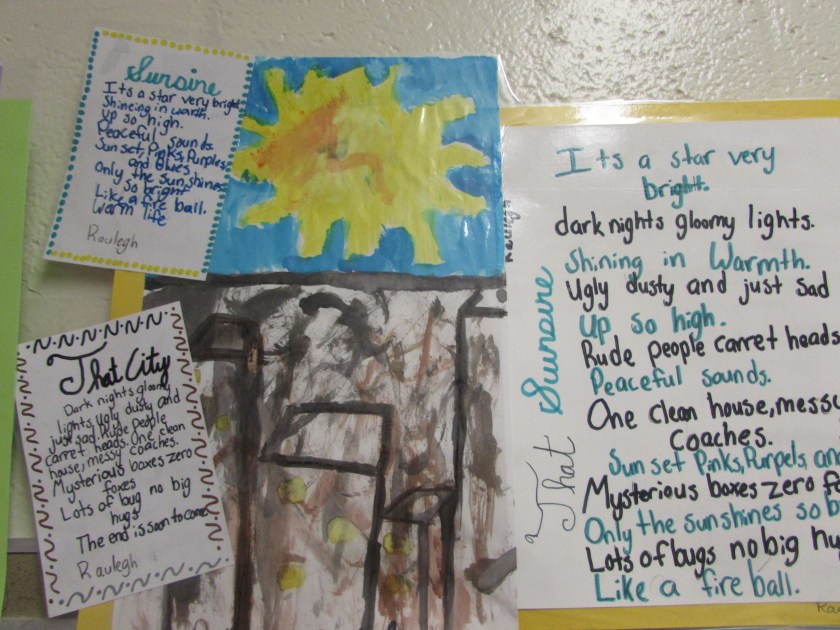 Sunsine
Its a star very bright
Shineing in warth.
up so high.
Peaceful sounds.
Sun set, Pinks, Purples,
and Blues
Only the sun shines
so bright
Like a fire ball.
Warm life
Raulegh
That City
Dark nights gloomy
lights, ugly dusty and
just sad. Rude People
carret heads. One clean
house, messy coaches.
Mysterious boxes zero
foxes
Lots of bug no big
hugs
The end is soon to come
Raulegh
Raulegh
That Sunsine
Its a star very
bright.
dark nights gloomy lights.
Shining in Warmth.
Ugly dusty and just sad
Up so high.
Rude people carret heads
Peaceful sounds.
One clean house, messy
coaches.
Sun set Pinks, Purpels, and
Mysterious boxes zero
Only the sun shines so
Lots of bugs no big
Like a fire ball.